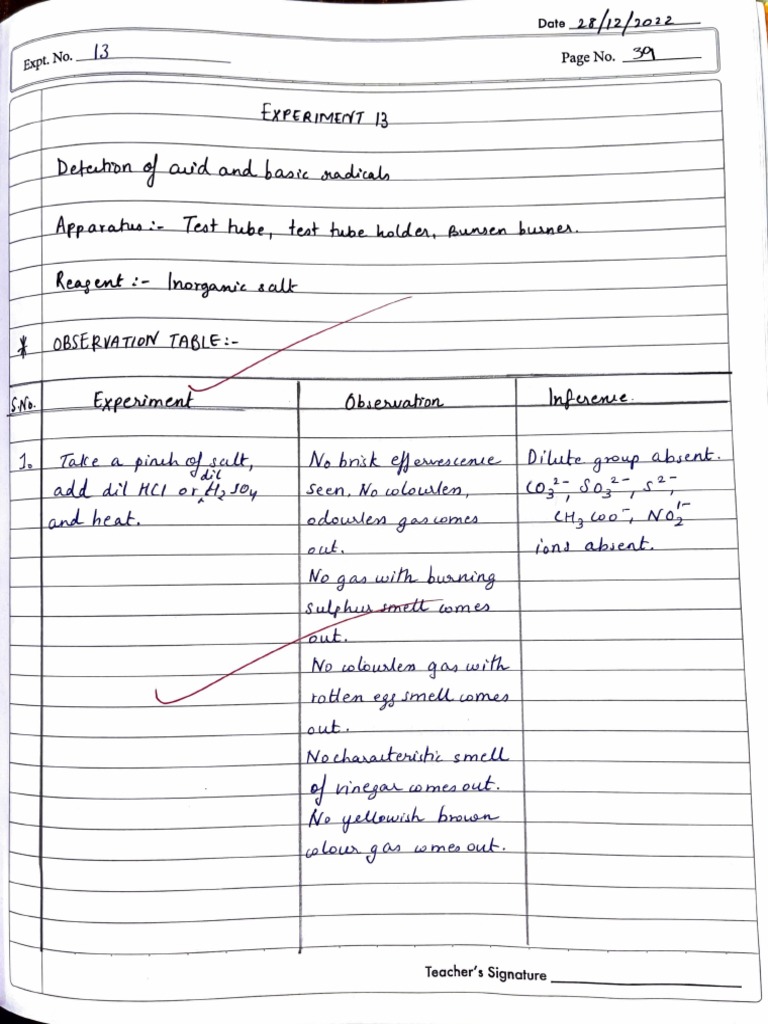 Date 28/12/2022
Expt. No. 13
Page No. 39
EXPERIMENT 13
Detection of acid and basic radicals
Apparatus :- Test tube, test tube holder, Bunsen burner.
Reagent :- Inorganic salt
* OBSERVATION TABLE:-
S.No. Experiment Observation Inference.
1. Take a pinch of salt,
add dil HCl or dil H2SO4
and heat.
No brisk effervescence
seen. No colourless,
odourless gas comes
out.
No gas with burning
sulphur smell comes
out.
No colourless gas with
rotten egg smell comes
out.
No characteristic smell
of vinegar comes out.
No yellowish brown
colour gas comes out.
Dilute group absent.
CO3²⁻, SO3²⁻, S²⁻,
CH3COO⁻, NO2¹⁻
ions absent.
Teacher's Signature